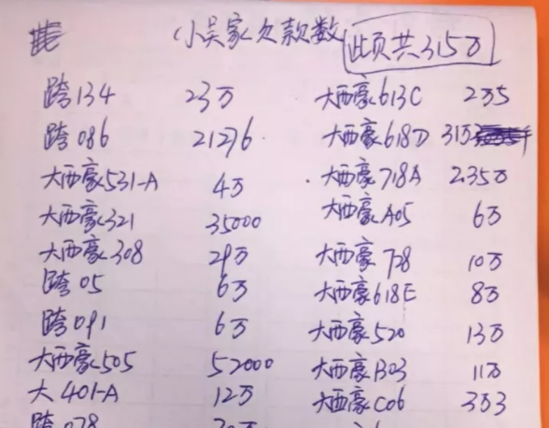 小吴家欠款数 此页共315万
跨134 23万 大西豪613C 2万5
跨086 21万6 大西豪618D 31万
大西豪531-A 4万 大西豪718A 2.35万
大西豪321 35000 大西豪A05 6万
大西豪308 29万 大西豪728 10万
跨05 6万 大西豪618E 8万
跨091 6万 大西豪520 13万
大西豪505 52000 大西豪B03 11万
大401-A 12万 大西豪C06 3万3
跨078